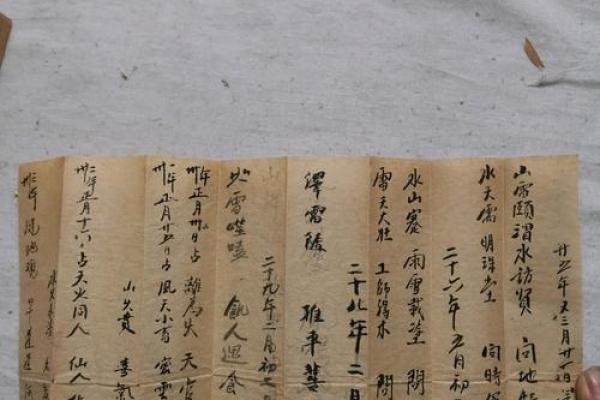 廿五年又三月廿一日
山雷頤 渭水訪賢 同地
水天需 明珠出土 同時
二十六年五月初
水山蹇 雨雪載塗 問
雷天大壯 工師得木 問
二十八年二月
澤雷隨 推車
二十九年二月初二
火雷噬嗑 飢人遇食
卅年正月卅日占 離為火 天官
卅一年正月廿五日占 風天小畜 密雲
山火賁 喜氣
卅二年正月十六日占天火同人 仙人
卅三年 風地觀 旱蓮逢河